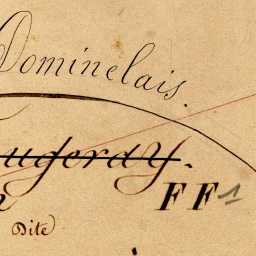 Dominelais.
ugeray.
FF 1
Dite